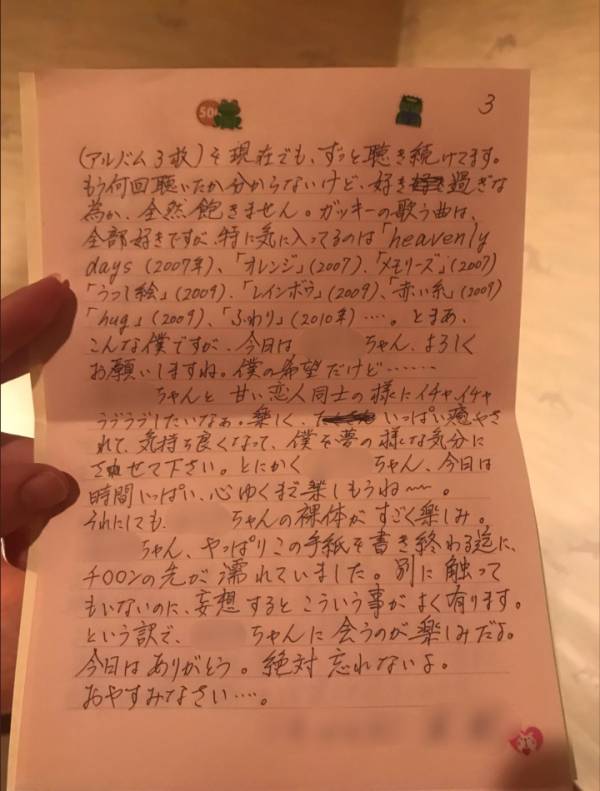 3
50
(アルバム3枚)を現在でも、ずっと聴き続けてます。
もう何回聴いたか分からないけど、好き過ぎな
為か、全然飽きません。ガッキーの歌う曲は、
全部好きですが、特に気に入ってるのは「heavenly
days (2007年)、「オレンジ」(2007)、「メモリーズ」(2007)
「うつし絵」(2009)、「レインボウ」(2009)、「赤い糸」(2009)
「hug」(2009)、「ふわり」(2010年)‥‥。とまあ、
こんな僕ですが、今日は ちゃん、よろしく
お願いしますね。僕の希望だけど‥‥‥
ちゃんと甘い恋人同士の様にイチャイチャ
ラブラブしたいなぁ。楽しく、いっぱい癒やさ
れて、気持ち良くなって、僕を夢の様な気分に
させて下さい。とにかく ちゃん、今日は
時間いっぱい、心ゆくまで楽しもうね〜。
それにしても、 ちゃんの裸体がすごく楽しみ。
ちゃん、やっぱりこの手紙を書き終わる迄に、
チ〇〇ンの先が濡れていました。別に触って
もいないのに、妄想するとこういう事がよく有ります。
という訳で、 ちゃんに会うのが楽しみだよ。
今日はありがとう。絶対忘れないよ。
おやすみなさい‥‥。